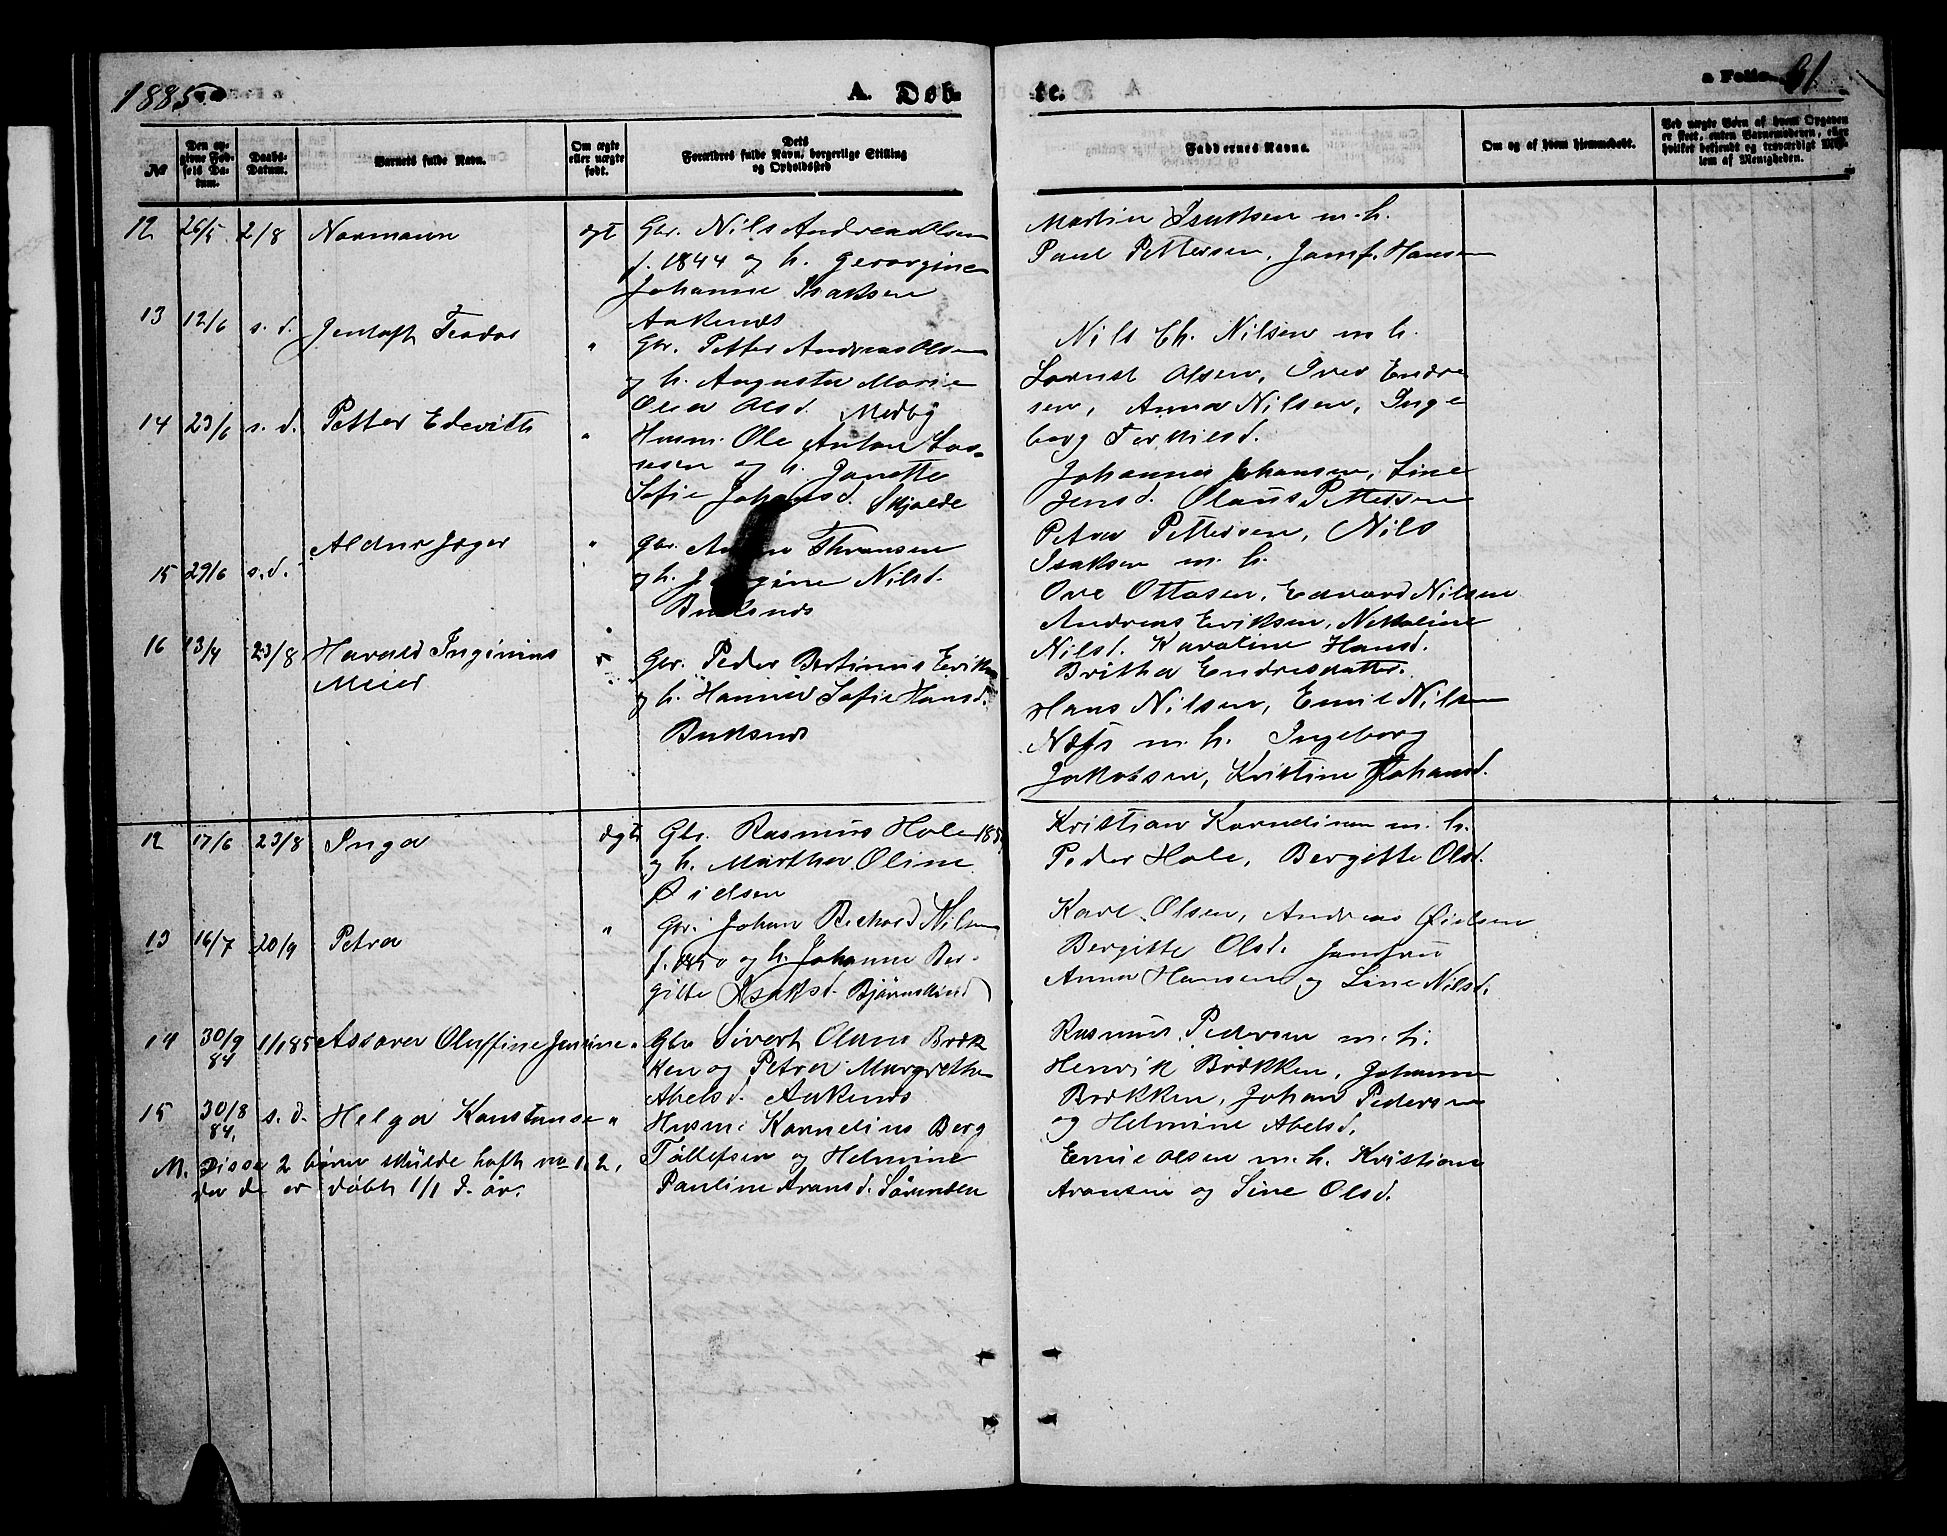 1885
A. Døb-
te.
a Folio 61.
No
Den op-
givne Fød-
sels Da-
tum.
Daabs-
Datum.
Barnets fulde Navn.
Om ægte
eller uægte
født.
Dets
Forældres fulde Navn, borgerlige Stilling
og Opholdssted
Faddernes Navne.
Om og af hvem hjemmedøbt.
Ved uægte Børn af hvem Opgaven
er skeet, enten Barnemoderen, eller
hvilket bekjendt og troværdigt Med-
lem af Menigheden.
12 26/5 2/8 Normann ægt Gbr. Nils Andreas Olsen
f. 1844 og h. Georgine
Johanne Isaksen
Aakenes
Martin Isaksen m. h.
Paul Pettersen, Jomf. Hansen
13 12/6 s. d. Jentoft Teodor " Gbr. Petter Andreas Olsen
og h. Augusta Marie
Olea Olsd. Medby
Nils Ch. Nilsen m. h.
Lornst Olsen, Iver Endre
sen, Anna Nilsen, Inge
borg Terkilsd.
14 23/6 s. d. Petter Edevith " Husm. Ole Anton Las-
sesen og h. Janette
Sofie Johansd. Skjolde
Johannes Johansen, Line
Jensd. Olaus Pettersen
Petra Pettersen, Nils
Isaksen m. h.
15 29/6 s. d. Aldur Jæger " Gbr. Thransen
og h. Nilsd.
Buksnes
Ove Ottosen, Edvard Nilsen
Andreas Eriksen, Nekoline
Nilsd. Karoline Hansd.
Britha Endresdatter.
16 13/4 23/8 Harald Inginius
Meier
" Gbr. Peder Bertinus Eriksen
og h. Hanna Sofie Hansd.
Buksnes
Hans Nilsen, Emil Nilsen
Næss m. h. Ingeborg
Jakobsen, Kristine Johansd.
12 17/6 23/8 Inga ægte Gbr. Rasmus Hole 185
og h. Martha Oline
Øielsen
Kristian Kornelissen m. h.
Peder Hole, Bergitte Olsd.
13 16/7 20/9 Petra " Gbr. Johan Richard Nilsen
f. 1850 og h. Johanne Ber-
gitte Isaksd. Bjørnskind
Karl Olsen, Andreas Øielsen
Bergitte Olsd. Jomfru
Anna Hansen og Line Nilsd.
14 30/9 84 1/1 85 Assora Oluffine Jensine " Gbr Sivert Olaus Bræk
ken og Petra Margrethe
Abelsd. Aakenes
Rasmus Pedersen m. h.
Henrik Brækken, Johanne
Brækken, Johan Pedersen
og Helmine Abelsd.
15 30/8 84. s. d. Helga Konstanse " Husm. Kornelius Berg
Tollefsen og Helmine
Pauline Aronsd. Sørenden
Emil Olsen m. h. Kristian
Aronsen og Line Olsd.
M. Disse 2 børn skulde haft no 1. 2,
da de er døbt 1/1 d. år.